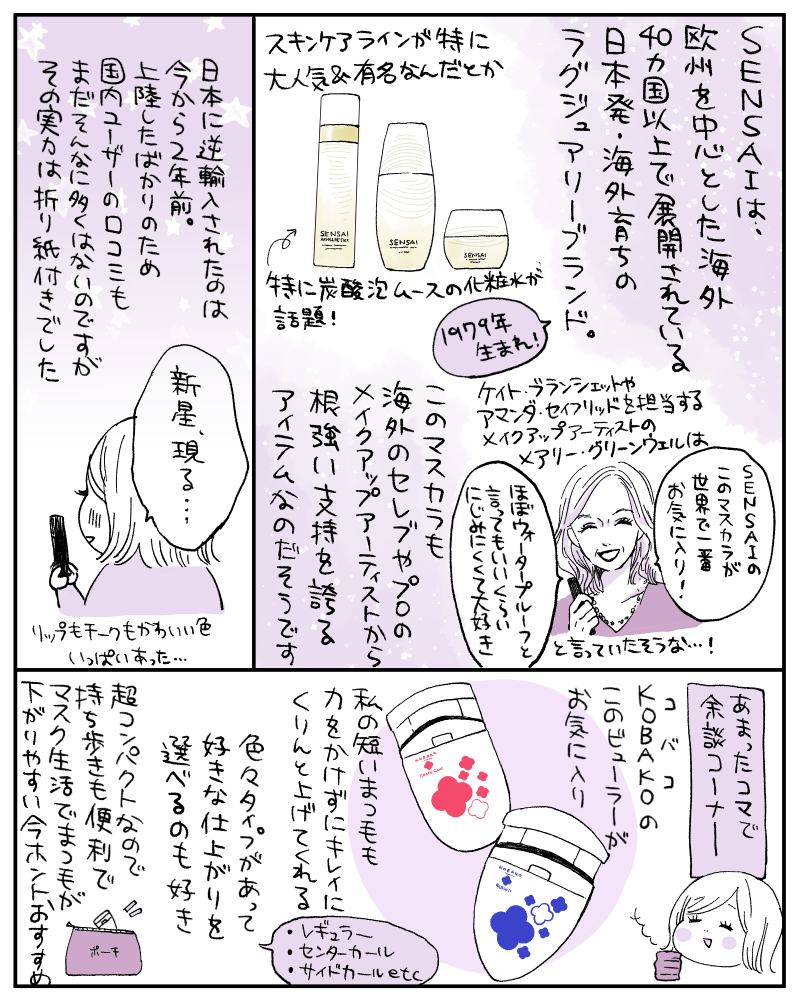 SENSAIは、
欧州を中心とした海外
40カ国以上で展開されている
日本発・海外育ちの
ラグジュアリーブランド。
スキンケアラインが特に
大人気&有名なんだとか
SENSAI
SENSAI
SENSAI
特に炭酸泡ムースの化粧水が
話題!
1979年
生まれ!
ケイト・ブランシェットや
アマンダ・セイフリッドを担当する
メイクアップアーティストの
メアリー・グリーンウェルは
SENSAIの
このマスカラが
世界で一番
お気に入り!
ほぼウォータープルーフと
言ってもいいくらい
にじみにくくて大好き
と言っていたそうな…!
このマスカラも
海外のセレブやプロの
メイクアップアーティストから
根強い支持を誇る
アイテムなのだそうです
日本に逆輸入されたのは
今から2年前。
上陸したばかりのため
国内ユーザーの口コミも
まだそんなに多くはないのですが
その実力は折り紙付きでした
新星、現る…
リップもチークもかわいい色
いっぱいあった…
あまったコマで
余談コーナー
コバコ
KOBAKOの
このビューラーが
お気に入り
私の短いまつ毛も
力をかけずにキレイに
くりんと上げてくれる
色々タイプがあって
好きな仕上がりを
選べるのも好き
・レギュラー
・センターカール
・サイドカールetc
超コンパクトなので
持ち歩きも便利で
マスク生活でまつ毛が
下がりやすい今ホントおすすめ
ポーチ